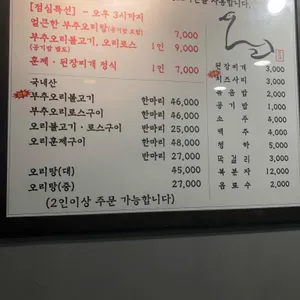 [점심특선] - 오후 3시까지
얼큰한 부추오리탕(공기밥 포함) 7,000
부추오리불고기, 오리로스 1인 9,000
(공기밥 별도)
훈제·된장찌개 정식 1인 7,000
국내산
부추오리불고기 한마리 46,000
부추오리로스구이 한마리 46,000
오리불고기·로스구이 반마리 25,000
오리훈제구이 한마리 48,000
반마리 27,000
오리탕(대) 45,000
오리탕(중) 27,000
(2인이상 주문 가능합니다)
사용합니다.
된장찌개 3,000
치즈사리 3,000
볶음밥 2,000
공기밥 1,000
소주 4,000
맥주 4,000
청하 5,000
막걸리 3,000
복분자 12,000
음료수 2,000